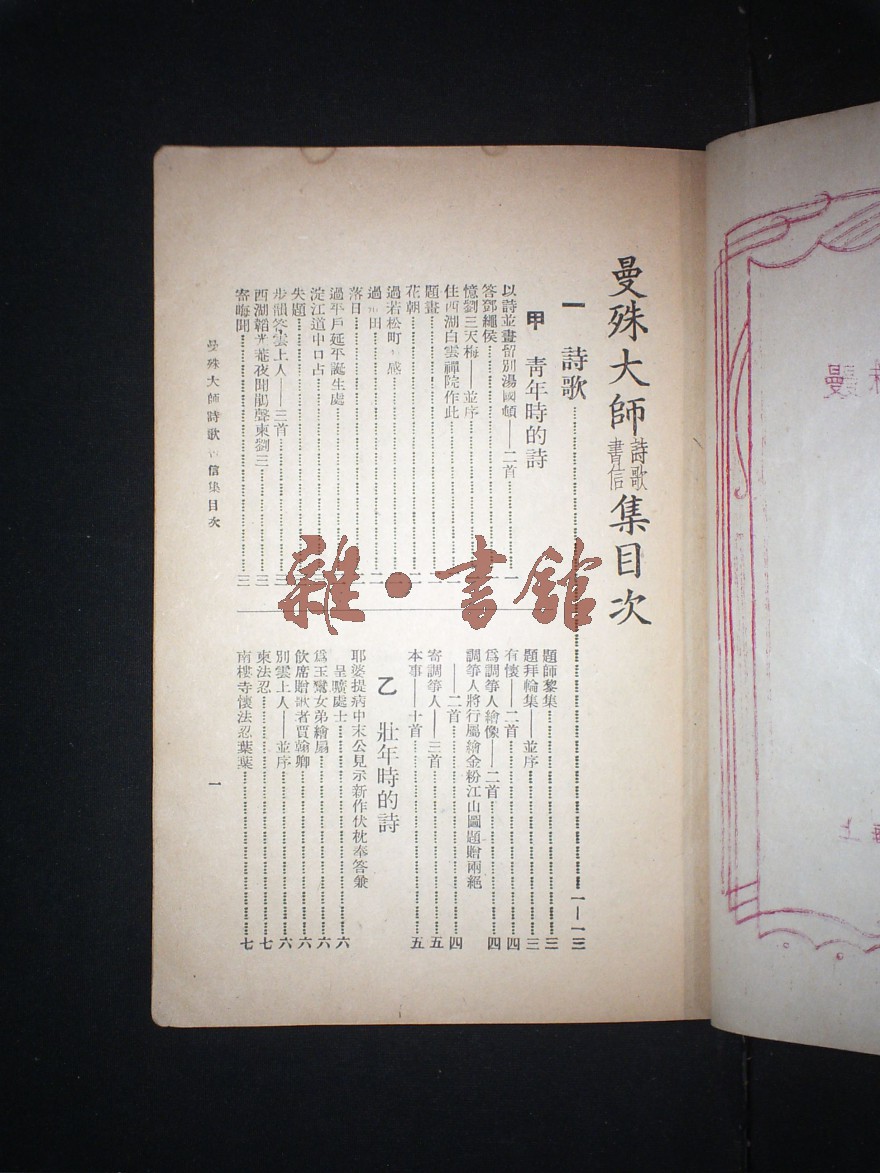 曼殊大師詩歌書信集目次
一 詩歌……一—一三
甲 靑年時的詩
以詩並畫留別湯國頓——二首……一
答鄧繩侯……
憶劉三天梅——並序……
住西湖白雲禪院作此……
題畫……
花朝……
過若松町 感……
過 田……二
落日……
過平戶延平誕生處……
淀江道中口占……
失題……
步韻答雲上人——三首……三
西湖韜光菴夜聞鵑聲柬劉三……三
寄晦聞……三
題師黎集……三
題拜輪集——並序……三
有懷——二首……四
爲調箏人繪像——二首……四
調箏人將行屬繪金粉江山圖題贈兩絕
——二首……四
寄調箏人——三首……五
本事——十首……五
乙 壯年時的詩
耶婆提病中末公見示新作伏枕奉答兼
呈曠處士……六
爲玉鸞女弟繪扇……六
飲席贈歌者賈翰卿……六
別雲上人——並序……六
柬法忍……七
南樓寺懷法忍葉葉……七
曼殊大師詩歌 信集目次
一
雜·書館
曼
上